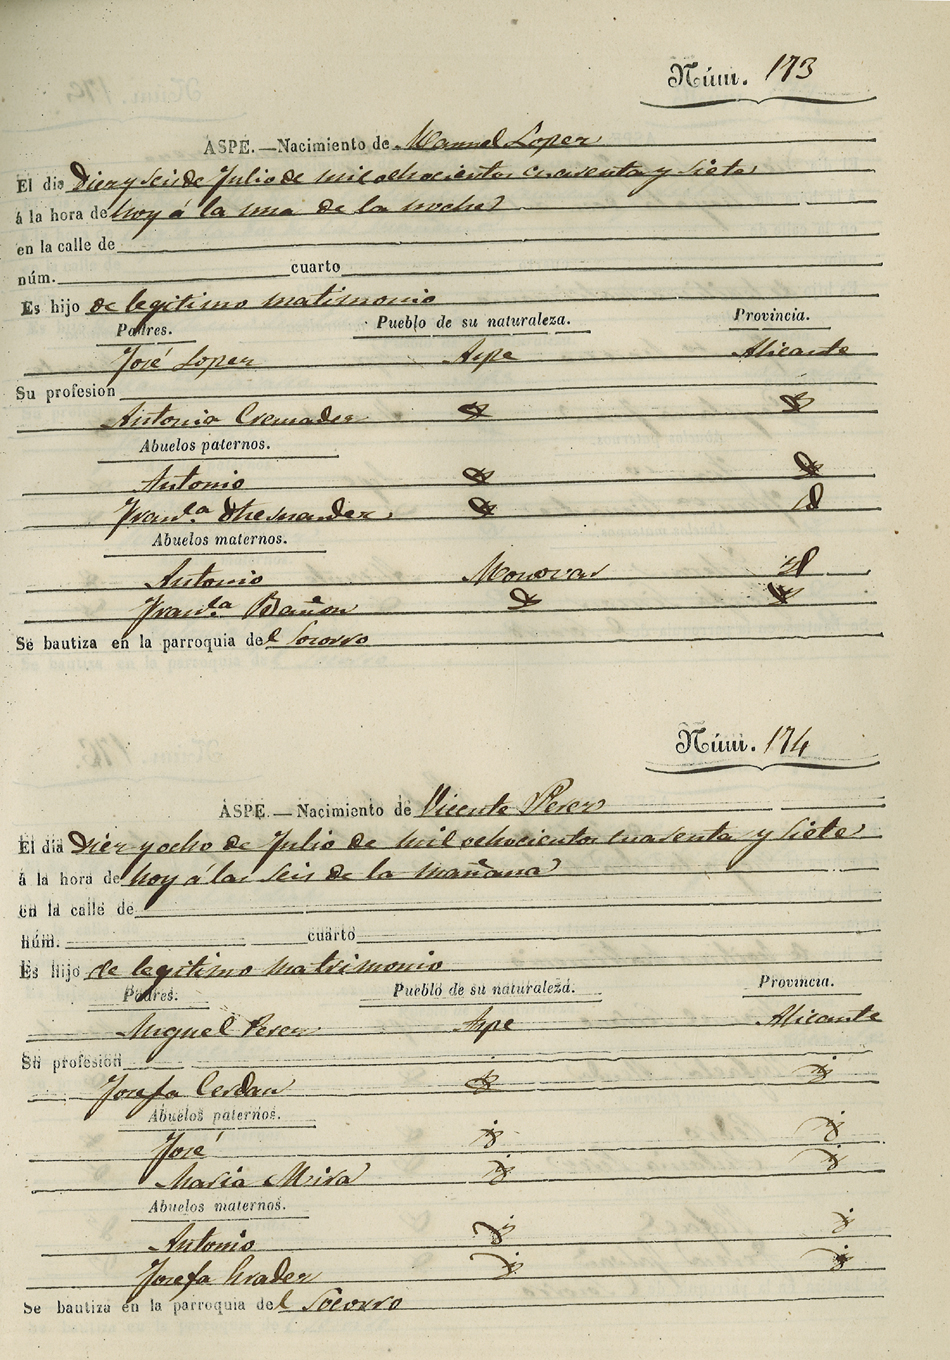 Núm. 173
ASPE.—Nacimiento de Manuel Lopez
El dia Diez y seis de Julio de mil ochocientos cuarenta y siete
á la hora de hoy á la una de la noche
en la calle de
núm. cuarto
Es hijo de legitimo matimonio
Padres. Pueblo de su naturaleza. Provincia.
José Lopez Aspe Alicante
Su profesion
Antonia Cremades
Abuelos paternos.
Antonio
Franca Hernandez
Abuelos maternos.
Antonio Monovar
Franca Bañon
Se bautiza en la parroquia del Socorro
Núm. 174
ASPE.—Nacimiento de Vicente Perez
El dia Diez y ocho de Julio de mil ochocientos cuarenta y siete
á la hora de hoy á las seis de la mañana
en la calle de
núm. cuarto
Es hijo de legitimo matrimonio
Padres. Pueblo de su naturaleza. Provincia.
Miguel Perez Aspe Alicante
Su profesion
Josefa Cerdan
Abuelos paternos.
José
Maria Mira
Abuelos maternos.
Antonio
Josefa
Se bautiza en la parroquia del Socorro